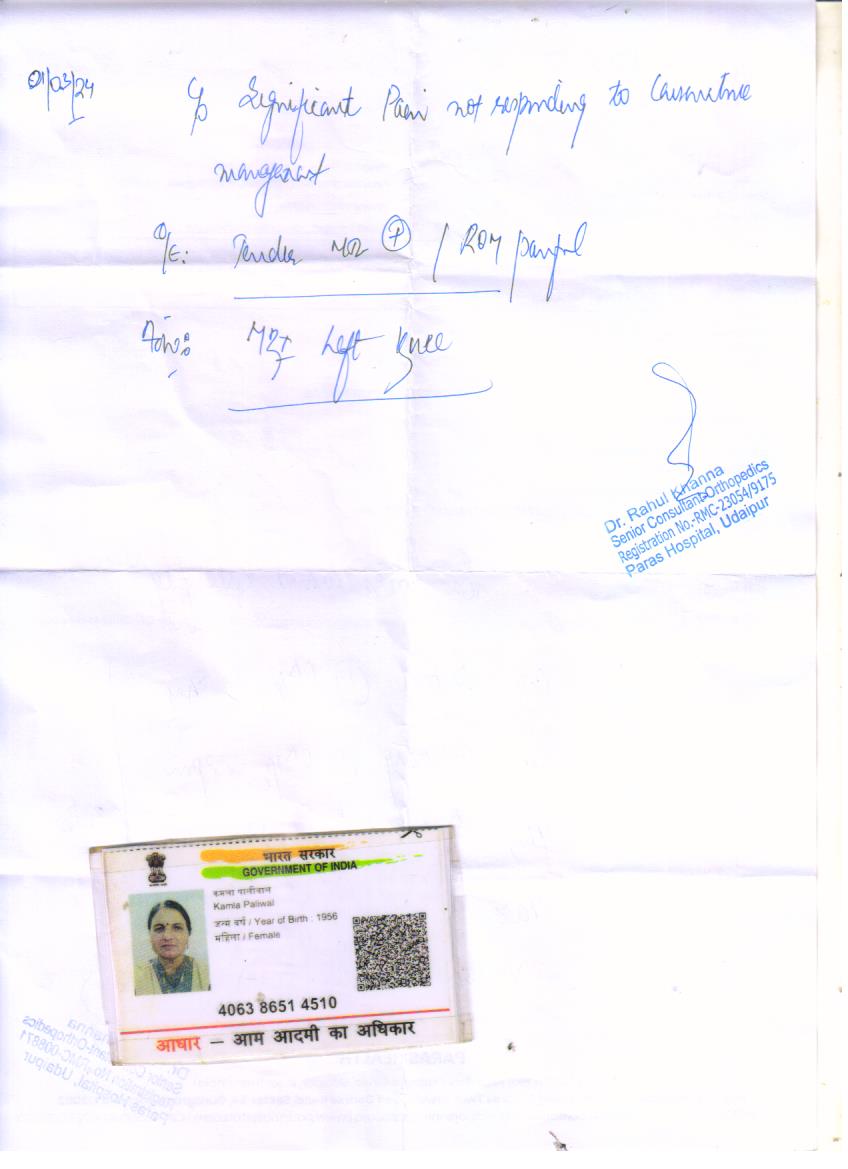 01/03/24
C/o Significant Pain not responding to Conservative
management
O/E: Tender MJL + / ROM painful
Adv: MRI Left Knee
Dr. Rahul Khanna
Senior Consultant-Orthopedics
Registration No.-RMC-23054/9175
Paras Hospital, Udaipur
भारत सरकार
GOVERNMENT OF INDIA
कमला पालीवाल
Kamla Paliwal
जन्म वर्ष / Year of Birth : 1956
महिला / Female
4063 8651 4510
आधार – आम आदमी का अधिकार
PARAS HEALTH